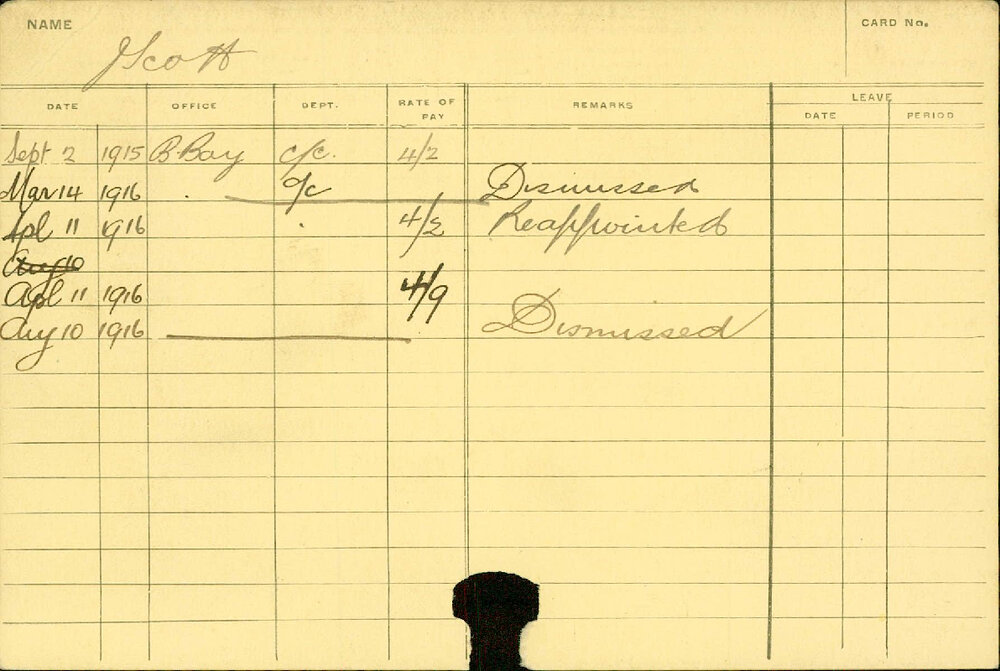 NAME
CARD No.
J Scott
DATE OFFICE DEPT. RATE OF PAY REMARKS LEAVE
DATE PERIOD
Sept 2 1915 B-Bay c/c. 4/2
Mar 14 1916 . c/c Dismissed
Apl 11 1916 . 4/2 Reappointed
Aug 10
Apl 11 1916 4/9
Aug 10 1916 Dismissed